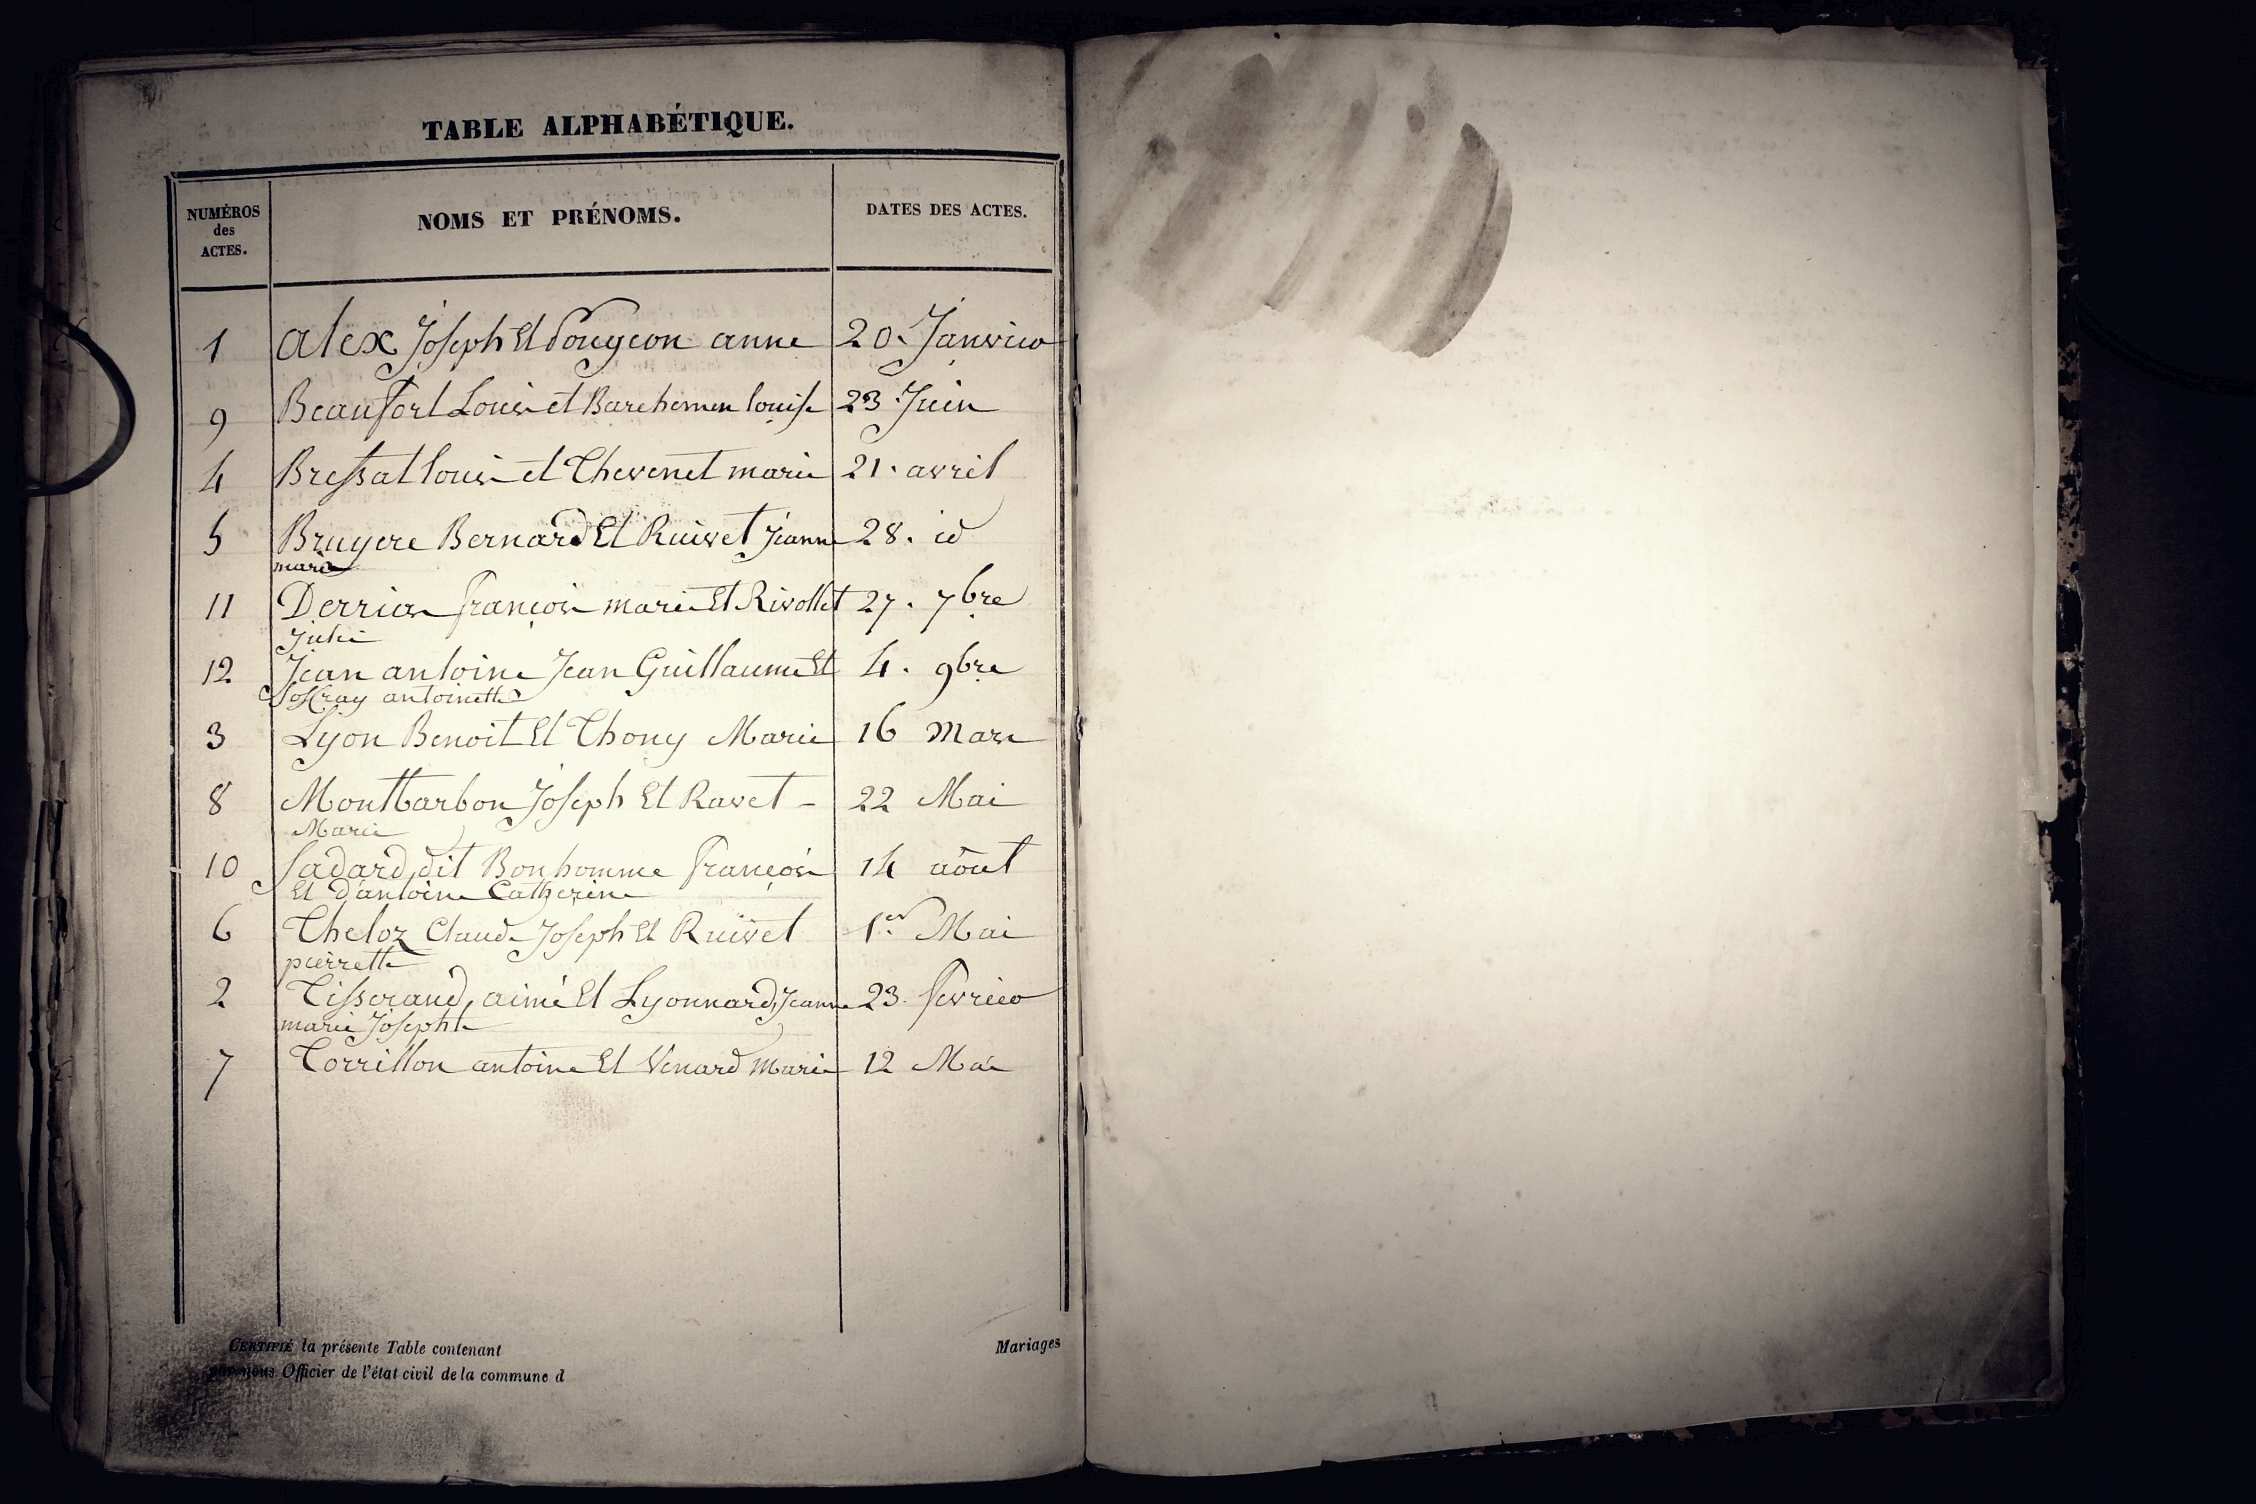 TABLE ALPHABÉTIQUE.
NUMÉROS des ACTES. NOMS ET PRÉNOMS. DATES DES ACTES.
1 alex Joseph Et Pougeon anne 20. Janvier
9 Beaufort Louis et louise 23 Juin
4 Bressat louis et Thevenet marie 21. avril
5 Bruyere Bernard Et Ruivet Jeanne 28. id
marie
11 Derrias françois marie Et Rivollet 27. 7bre
Julie
12 Jean antoine Jean Guillaume Et 4. 9bre
antoinette
3 Lyon Benoit Et Thony Marie 16 Mars
8 Montbarbon Joseph Et Ravet - 22 Mai
Marie
10 Sadard dit Bonhomme françois 14 août
Et d'antoine Catherine
6 Theloz Claude Joseph Et Ruivet 1er Mai
pierrette
2 Tisserand, aimé Et Lyonnard, Jeanne 23. fevrier
marie Josephte
7 Torrillon antoine Et Venard Marie 12 Mai
CERTIFIÉ la présente Table contenant Mariages
par nous Officier de l'état civil de la commune d